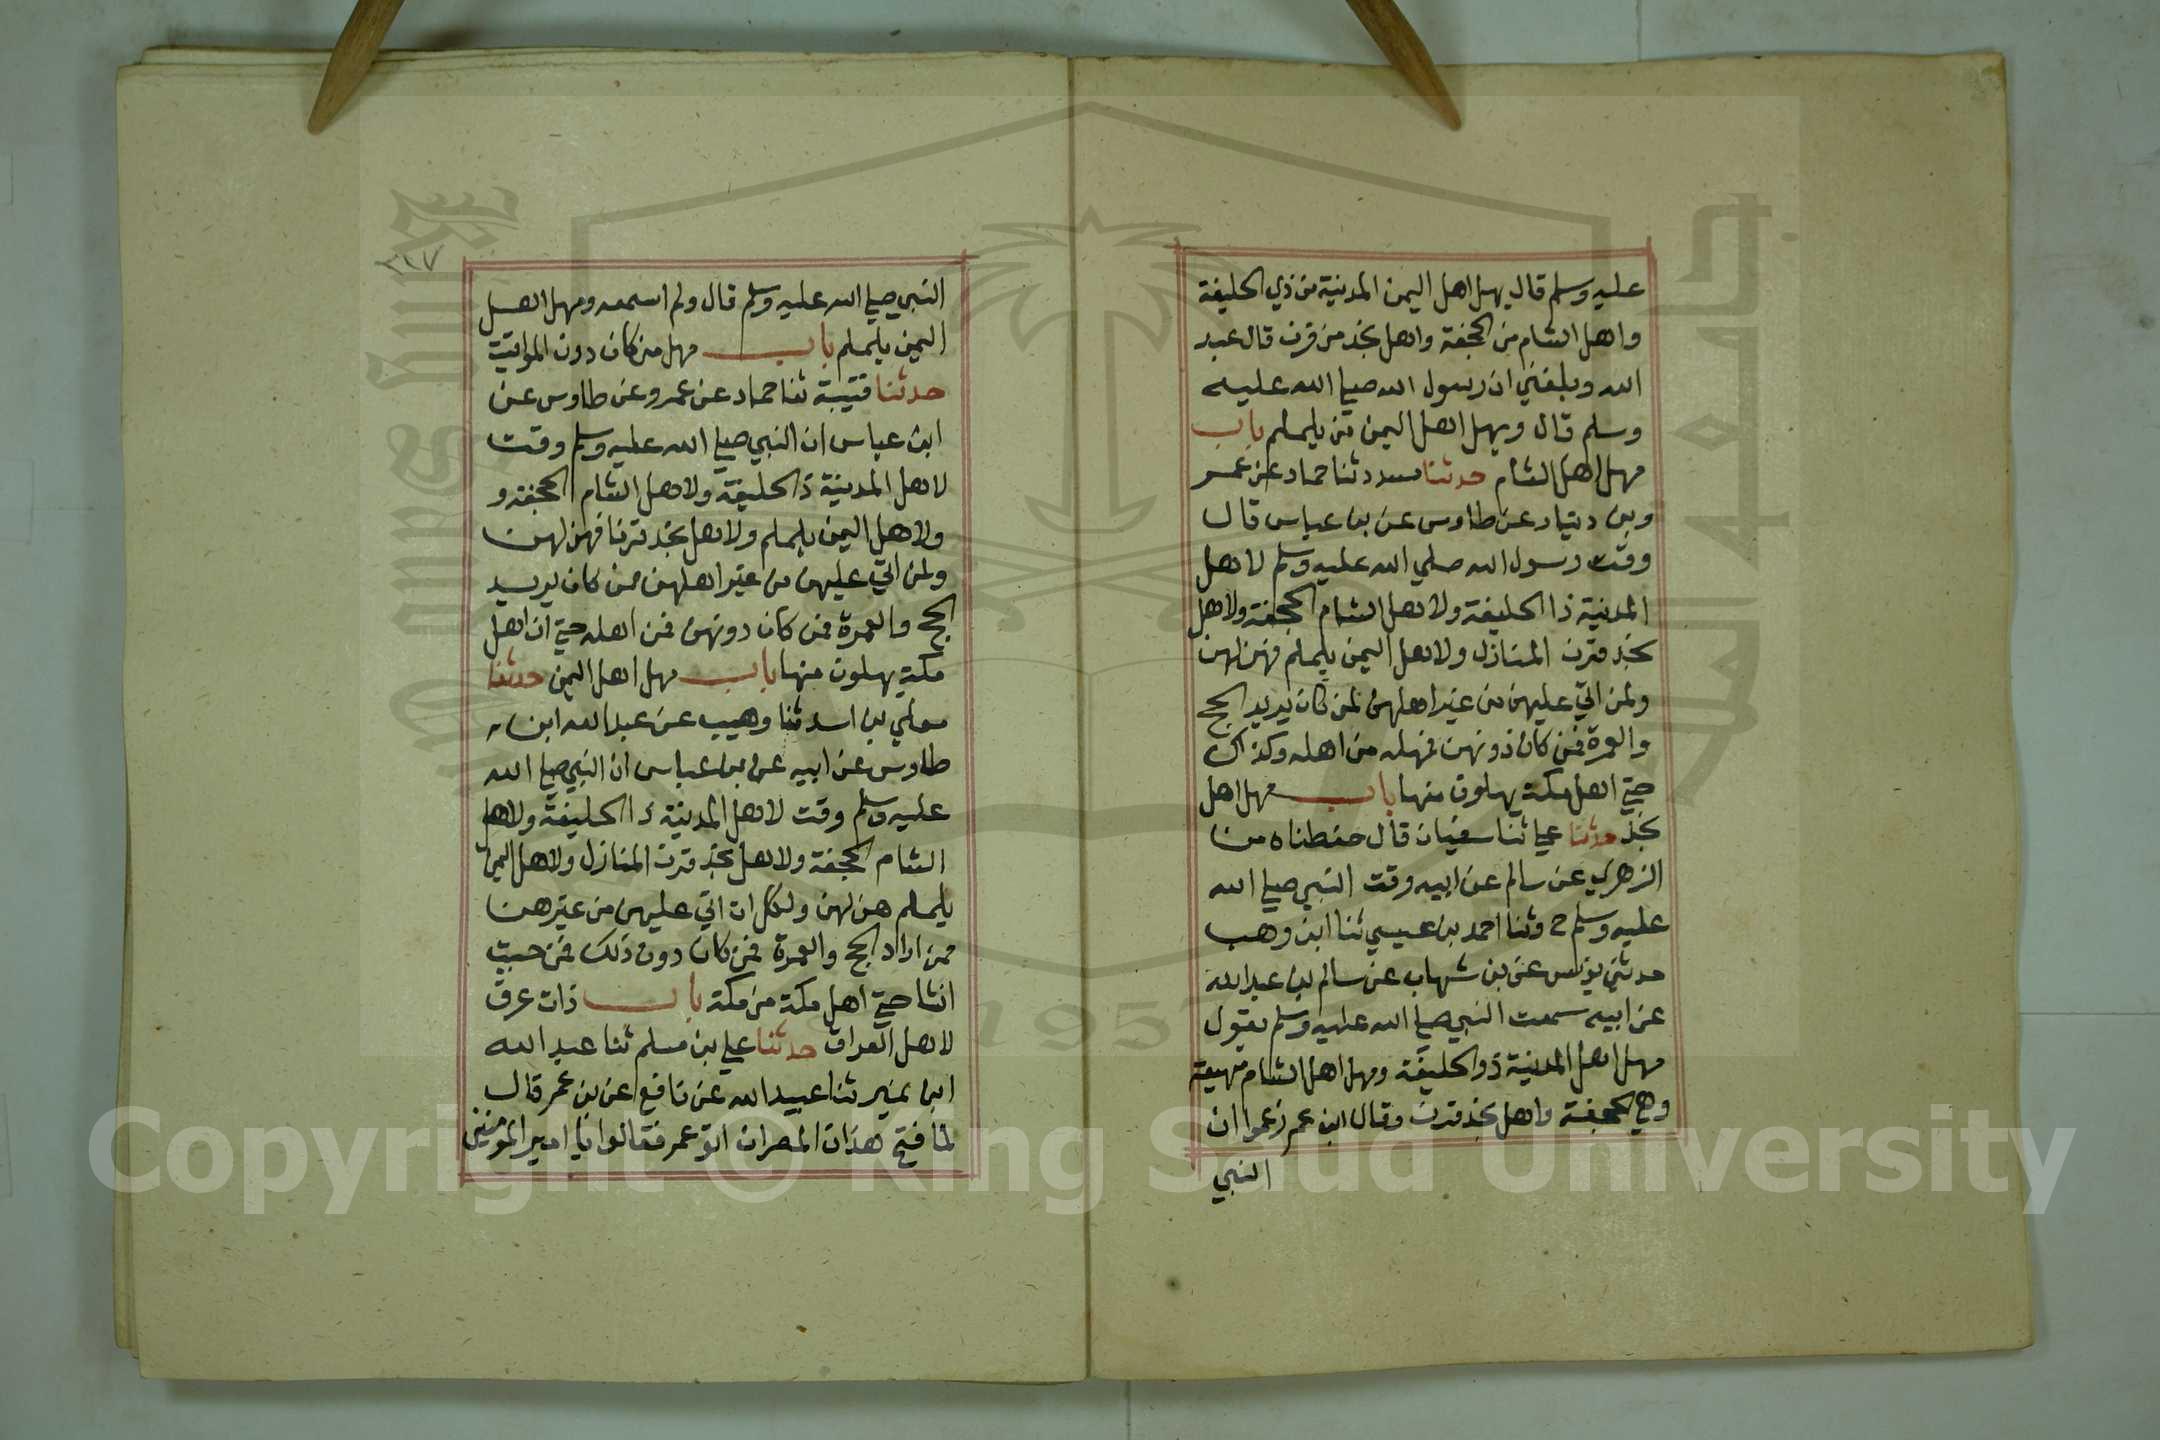 عليه وسلم قال يهل اهل اليمن المدينة من ذي الحليفة
واهل الشام من الجحفة واهل نجد من قرن قال عبد
الله وبلغني ان رسول الله صلى الله عليه
وسلم قال ويهل اهل اليمن من يلملم باب
مهل اهل الشام حدثنا مسدد ثنا حماد عن عمر
وبن دينار عن طاوس عن بن عباس قال
وقت رسول الله صلي الله عليه وسلم لاهل
المدينة ذا الحليفة ولاهل الشام الجحفة ولاهل
نجد قرن المنازل ولاهل اليمن يلملم فهن لهن
ولمن اتي عليهن من غير اهلهن لمن كان يريد الحج
والعمرة فمن كان دونهن فمهله من اهله وكذاك
حتي اهل مكة يهلون منها باب مهل اهل
نجد حدثنا علي ثنا سفيان قال حفظناه من
الزهري عن سالم عن ابيه وقت النبي صلي الله
عليه وسلم ح وثنا احمد بن عيسي ثنا ابن وهب
حدثني يونس عن بن شهاب عن سالم بن عبد الله
عن ابيه سمعت النبي صلي الله عليه وسلم يقول
مهل اهل المدينة ذو الحليفة ومهل اهل الشام مهيعة
وهي الجحفة واهل نجد قرن وقال ابن عمر زعموا ان
النبي
٣١٧
النبي صلي الله عليه وسلم قال ولم اسمعه ومهل اهل
اليمن يلملم باب مهل من كان دون المواقيت
حدثنا قتيبة ثنا حماد عن عمرو عن طاوس عن
ابن عباس ان النبي صلي الله عليه وسلم وقت
لاهل المدينة ذ الحليفة ولاهل الشام الجحفة و
ولاهل اليمن يلملم ولاهل نجد قرنا فهن لهن
ولمن اتي عليهن من غير اهلهن ممن كان يريد
الحج والعمرة فمن كان دونهن فمن اهله حتي ان اهل
مكة يهلون منها باب مهل اهل اليمن حدثنا
معلي بن اسد ثنا وهيب عن عبد الله ابن
طاوس عن ابيه عن بن عباس ان النبي صلي الله
عليه وسلم وقت لاهل المدينة ذا الحليفة ولاهل
الشام الجحفة ولاهل نجد قرن المنازل ولاهل اليمن
يلملم هن لهن ولكل ات اتي عليهن من غيرهن
ممن اراد الحج والعمرة فمن كان دون ذلك فمن حيث
انشا حتي اهل مكة من مكة باب ذات عرق
لاهل العراق حدثنا علي بن مسلم ثنا عبد الله
ابن نمير ثنا عبيد الله عن نافع عن بن عمر قال
لما فتح هذان المصران اتو عمر فقالوا يا امير المومنين
Copyright © King Saud University
1957